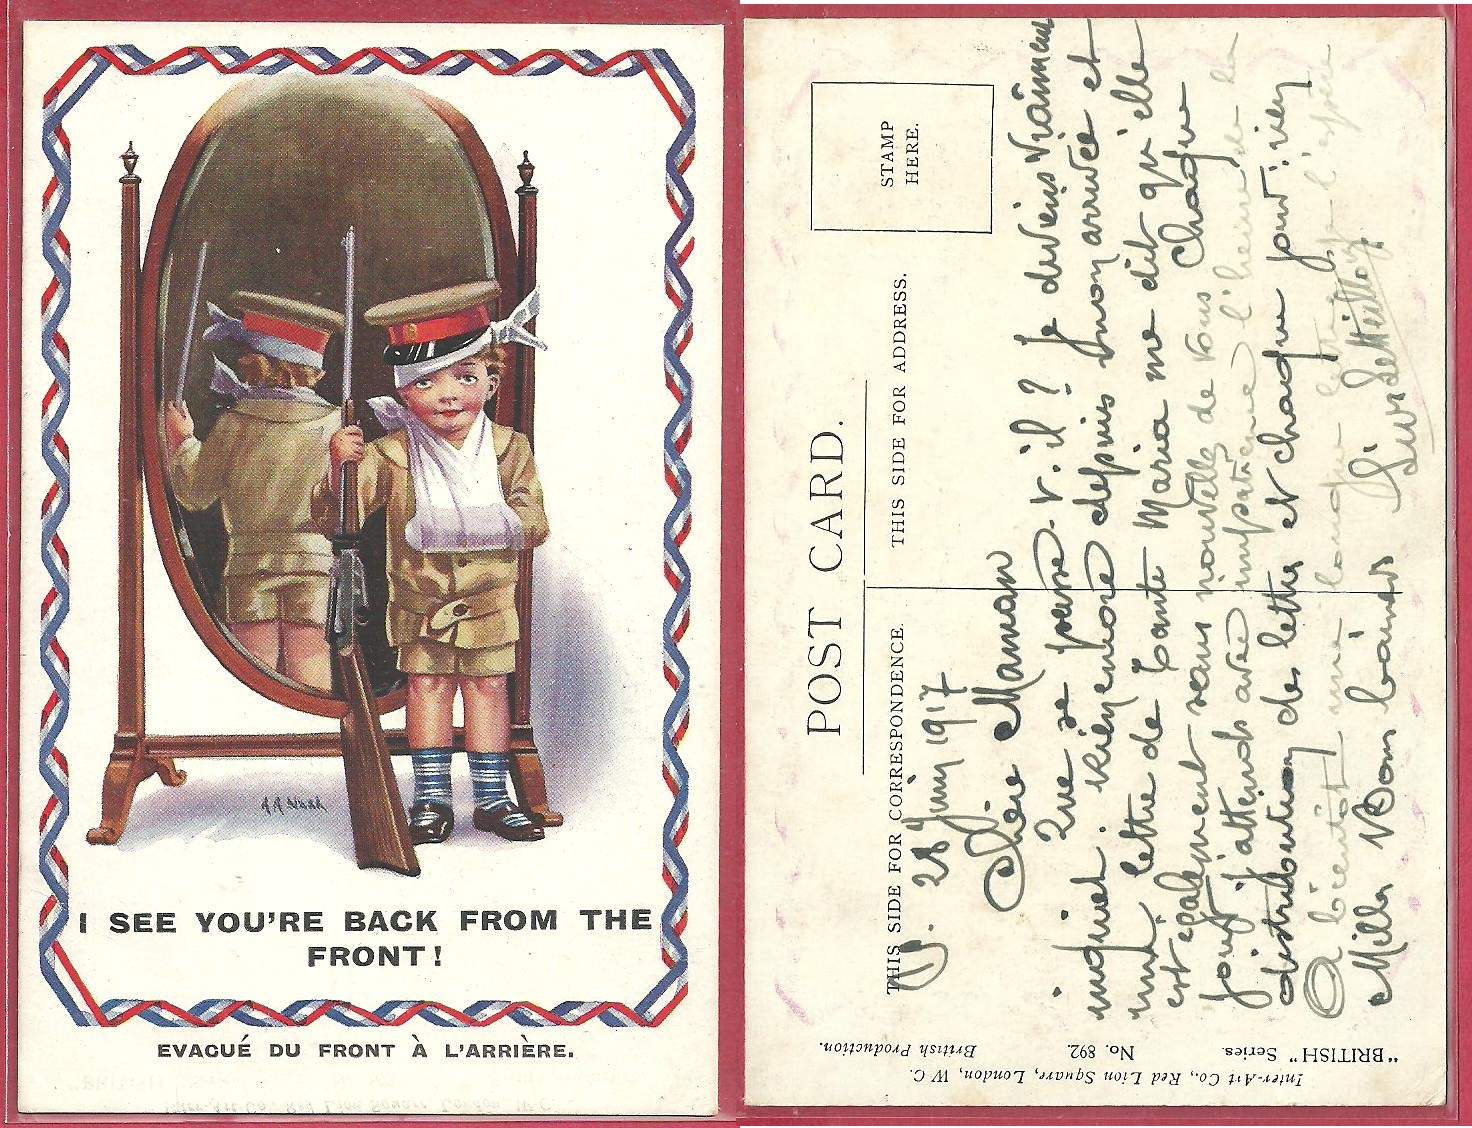 A A Nash
I SEE YOU'RE BACK FROM THE
FRONT!
EVACUÉ DU FRONT À L'ARRIÈRE.
STAMP
HERE.
POST CARD.
THIS SIDE FOR CORRESPONDENCE.
THIS SIDE FOR ADDRESS.
28 juin 1917
Chère Maman
Que se passe-t-il? Je deviens vraiment
inquiet. Rien encore depuis mon arrivée et
une lettre de tante Maria me dit qu'elle
est également sans nouvelle de vous Chaque
jour j'attends avec impatience l'heure de la
distribution des lettres et chaque jour rien
A bientôt une longue lettre je l'espère
Mille bons baisers
"BRITISH" Series.
No. 892.
British Production.
Inter-Art Co., Red Lion Square, London, W.C.